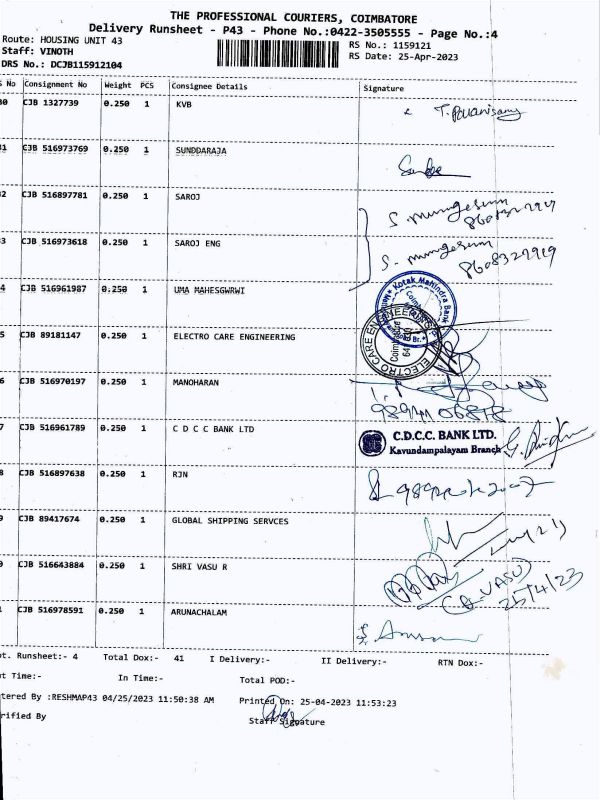 THE PROFESSIONAL COURIERS, COIMBATORE
Delivery Runsheet - P43 - Phone No.:0422-3505555 - Page No.:4
Route: HOUSING UNIT 43 RS No.: 1159121
Staff: VINOTH RS Date: 25-Apr-2023
DRS No.: DCJB115912104
No Consignment No Weight PCS Consignee Details Signature
CJB 1327739 0.250 1 KVB
CJB 516973769 0.250 1 SUNDDARAJA
CJB 516897781 0.250 1 SAROJ S. murugesan
CJB 516973618 0.250 1 SAROJ ENG S. murugesan
8608327919
CJB 516961987 0.250 1 UMA MAHESGWRWI
Kotak Mahindra Bank
CJB 89181147 0.250 1 ELECTRO CARE ENGINEERING ELECTRO CARE ENGINEERING
CJB 516970197 0.250 1 MANOHARAN
CJB 516961789 0.250 1 C D C C BANK LTD C.D.C.C. BANK LTD.
Kavundampalayam Branch
CJB 516897638 0.250 1 RJN
CJB 89417674 0.250 1 GLOBAL SHIPPING SERVCES
CJB 516643884 0.250 1 SHRI VASU R (R-VASU)
25/4/23
CJB 516978591 0.250 1 ARUNACHALAM
Runsheet:- 4 Total Dox:- 41 I Delivery:- II Delivery:- RTN Dox:-
Time:- In Time:- Total POD:-
tered By :RESHMAP43 04/25/2023 11:50:38 AM Printed On: 25-04-2023 11:53:23
rified By Staff Signature